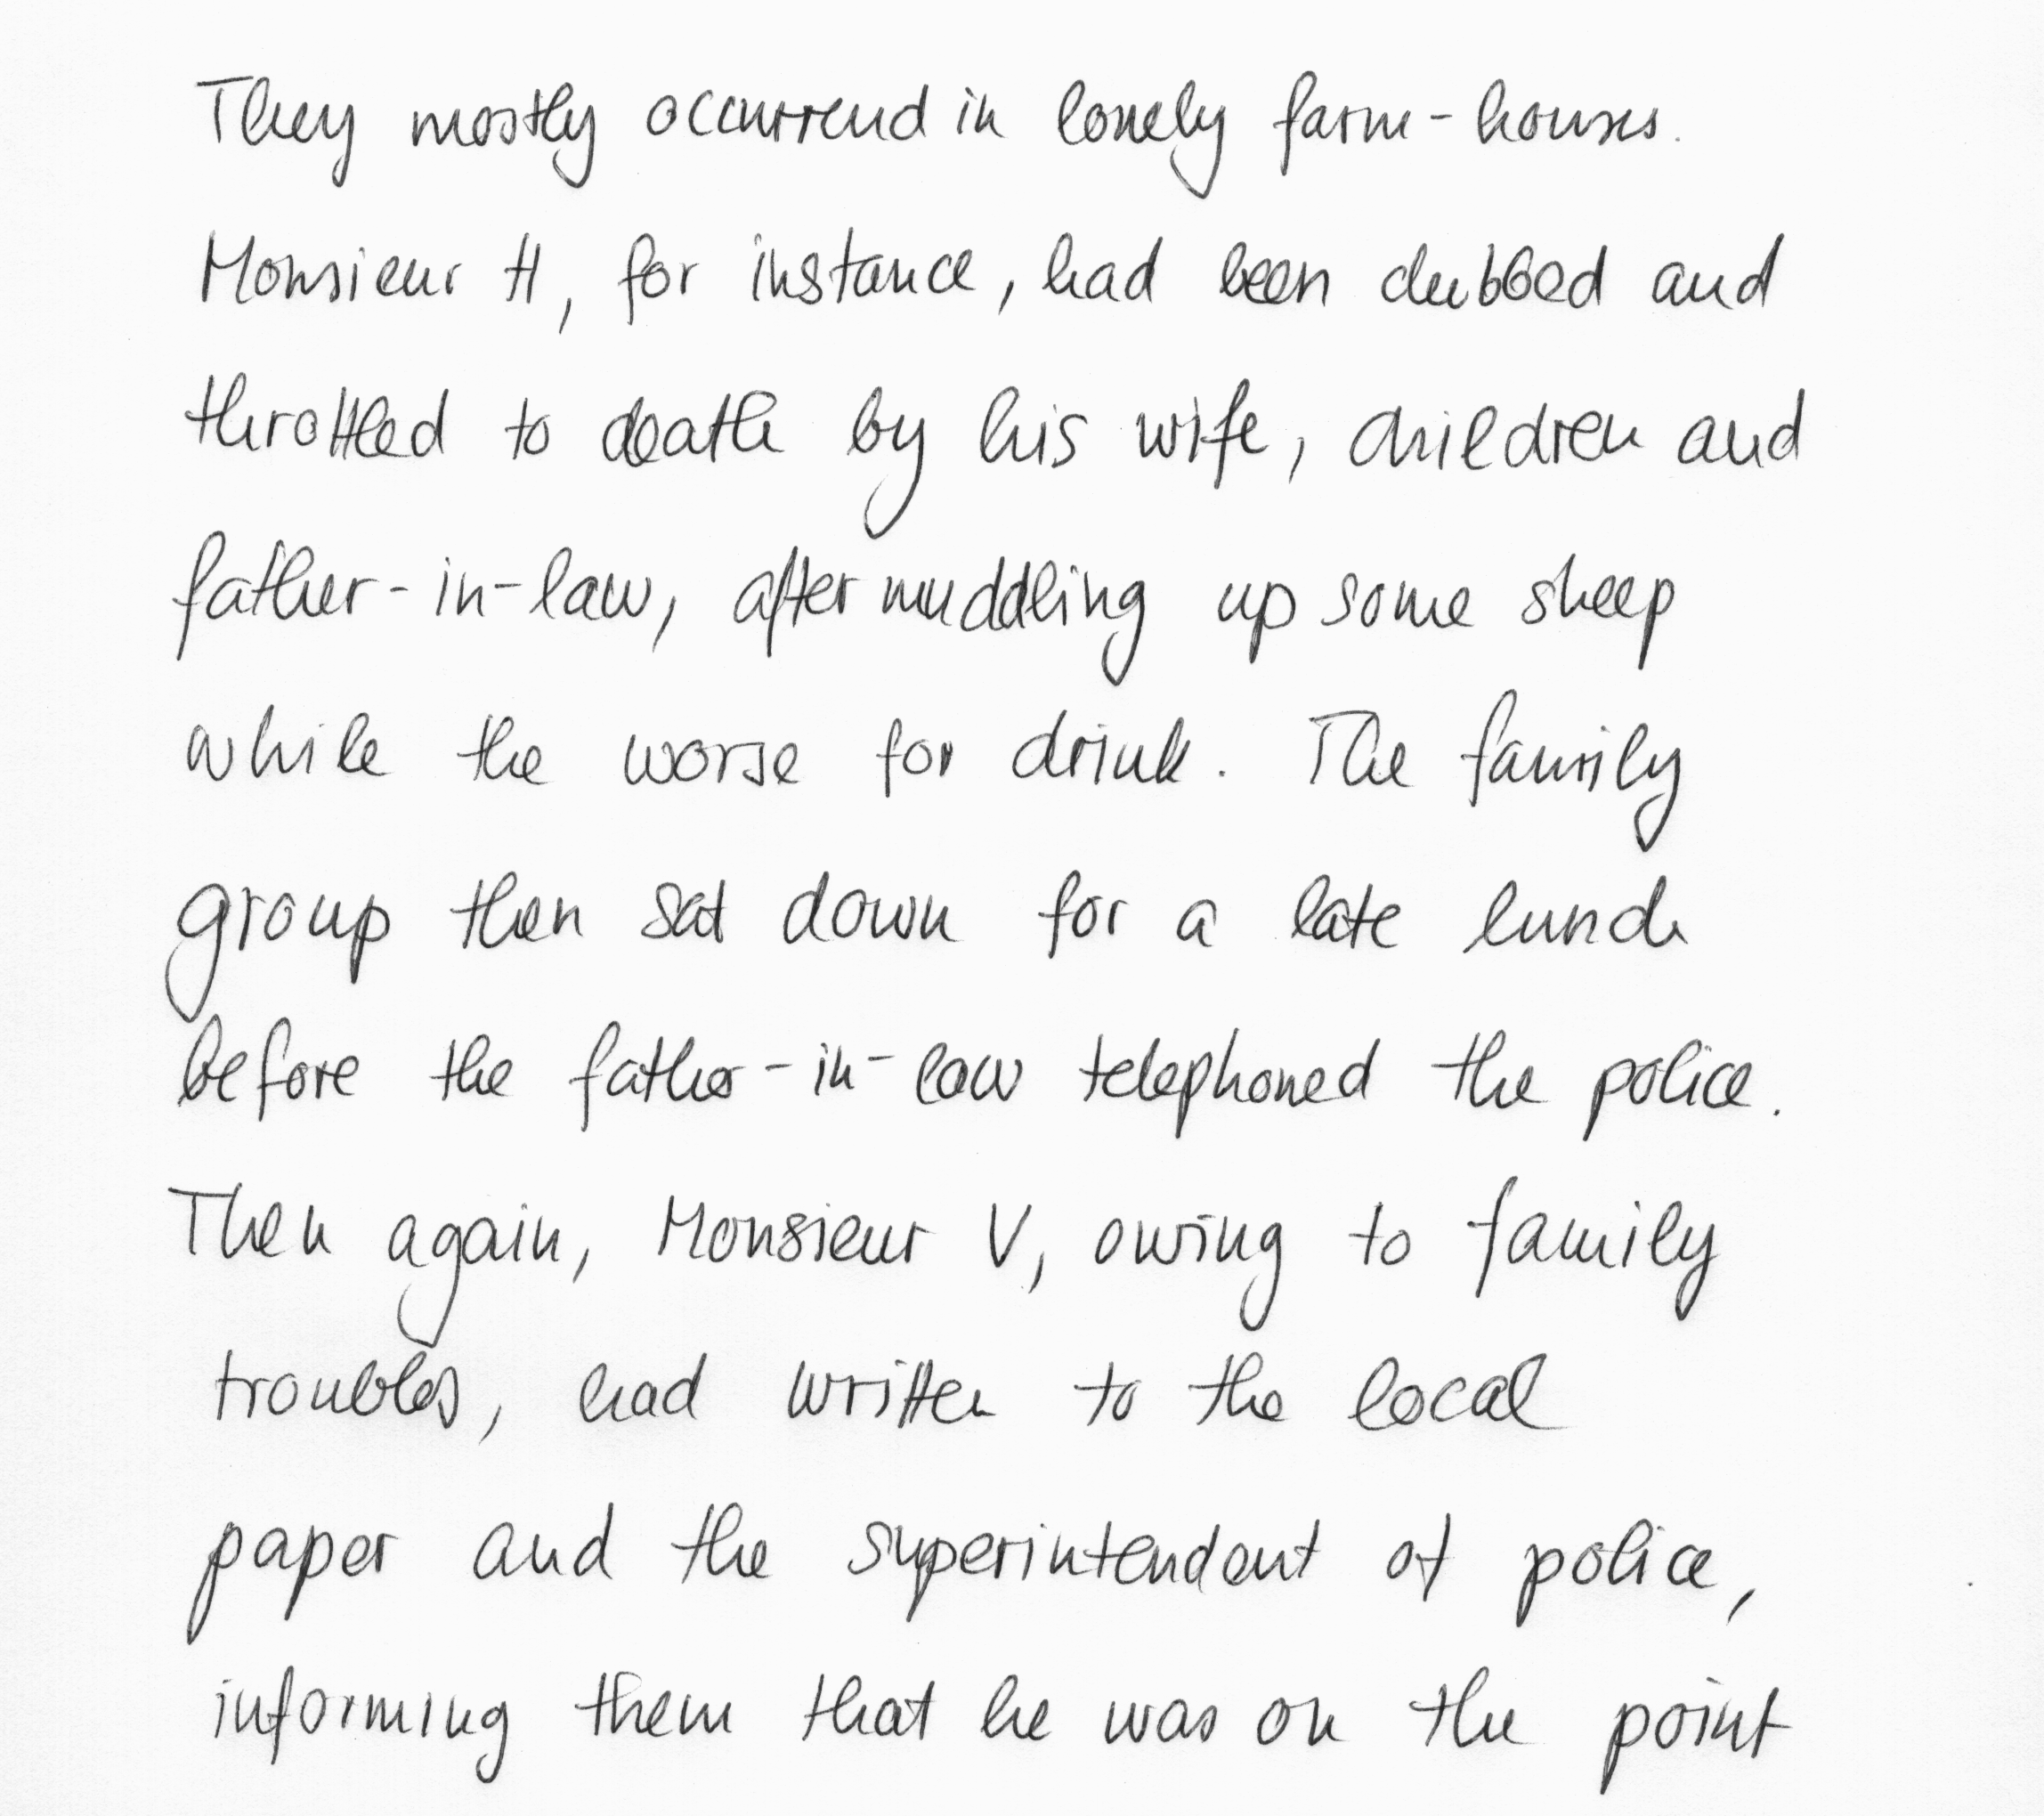 They mostly occurrend in lonely farm-houses.
Monsieur H, for instance, had been clubbed and
throttled to death by his wife, children and
father-in-law, after muddling up some sheep
while the worse for drink. The family
group then sat down for a late lunch
before the father-in-law telephoned the police.
Then again, Monsieur V, owing to family
troubles, had written to the local
paper and the superintendant of police,
informing them that he was on the point